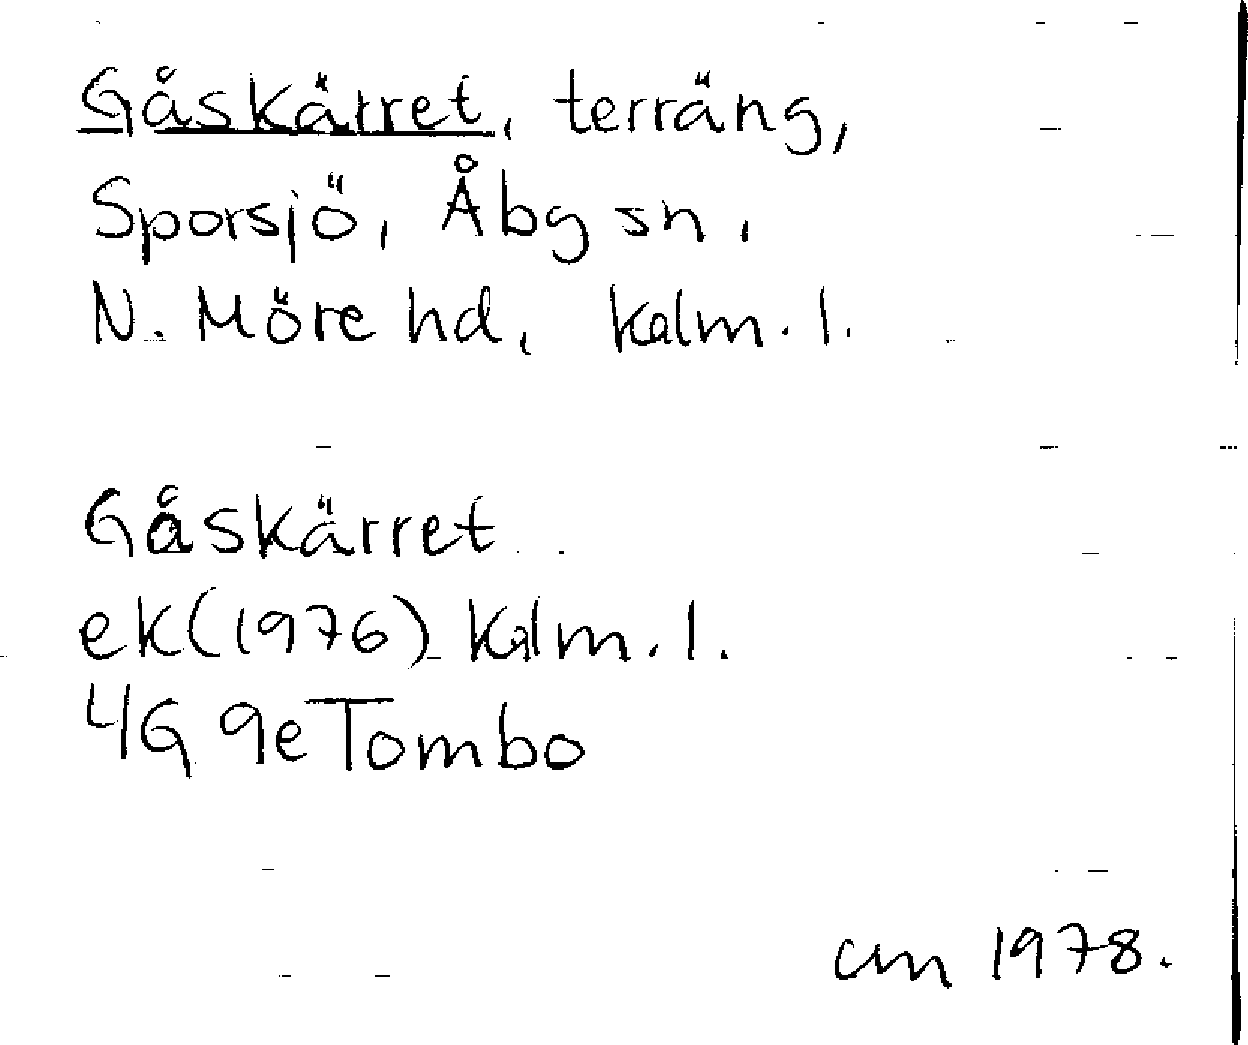 Gåskärret, terräng,
Sporsjö, Åby sn,
N. Möre hd, Kalm. l.
Gåskärret
ek(1976) Kalm. l.
4G 9e Tombo
cm 1978.